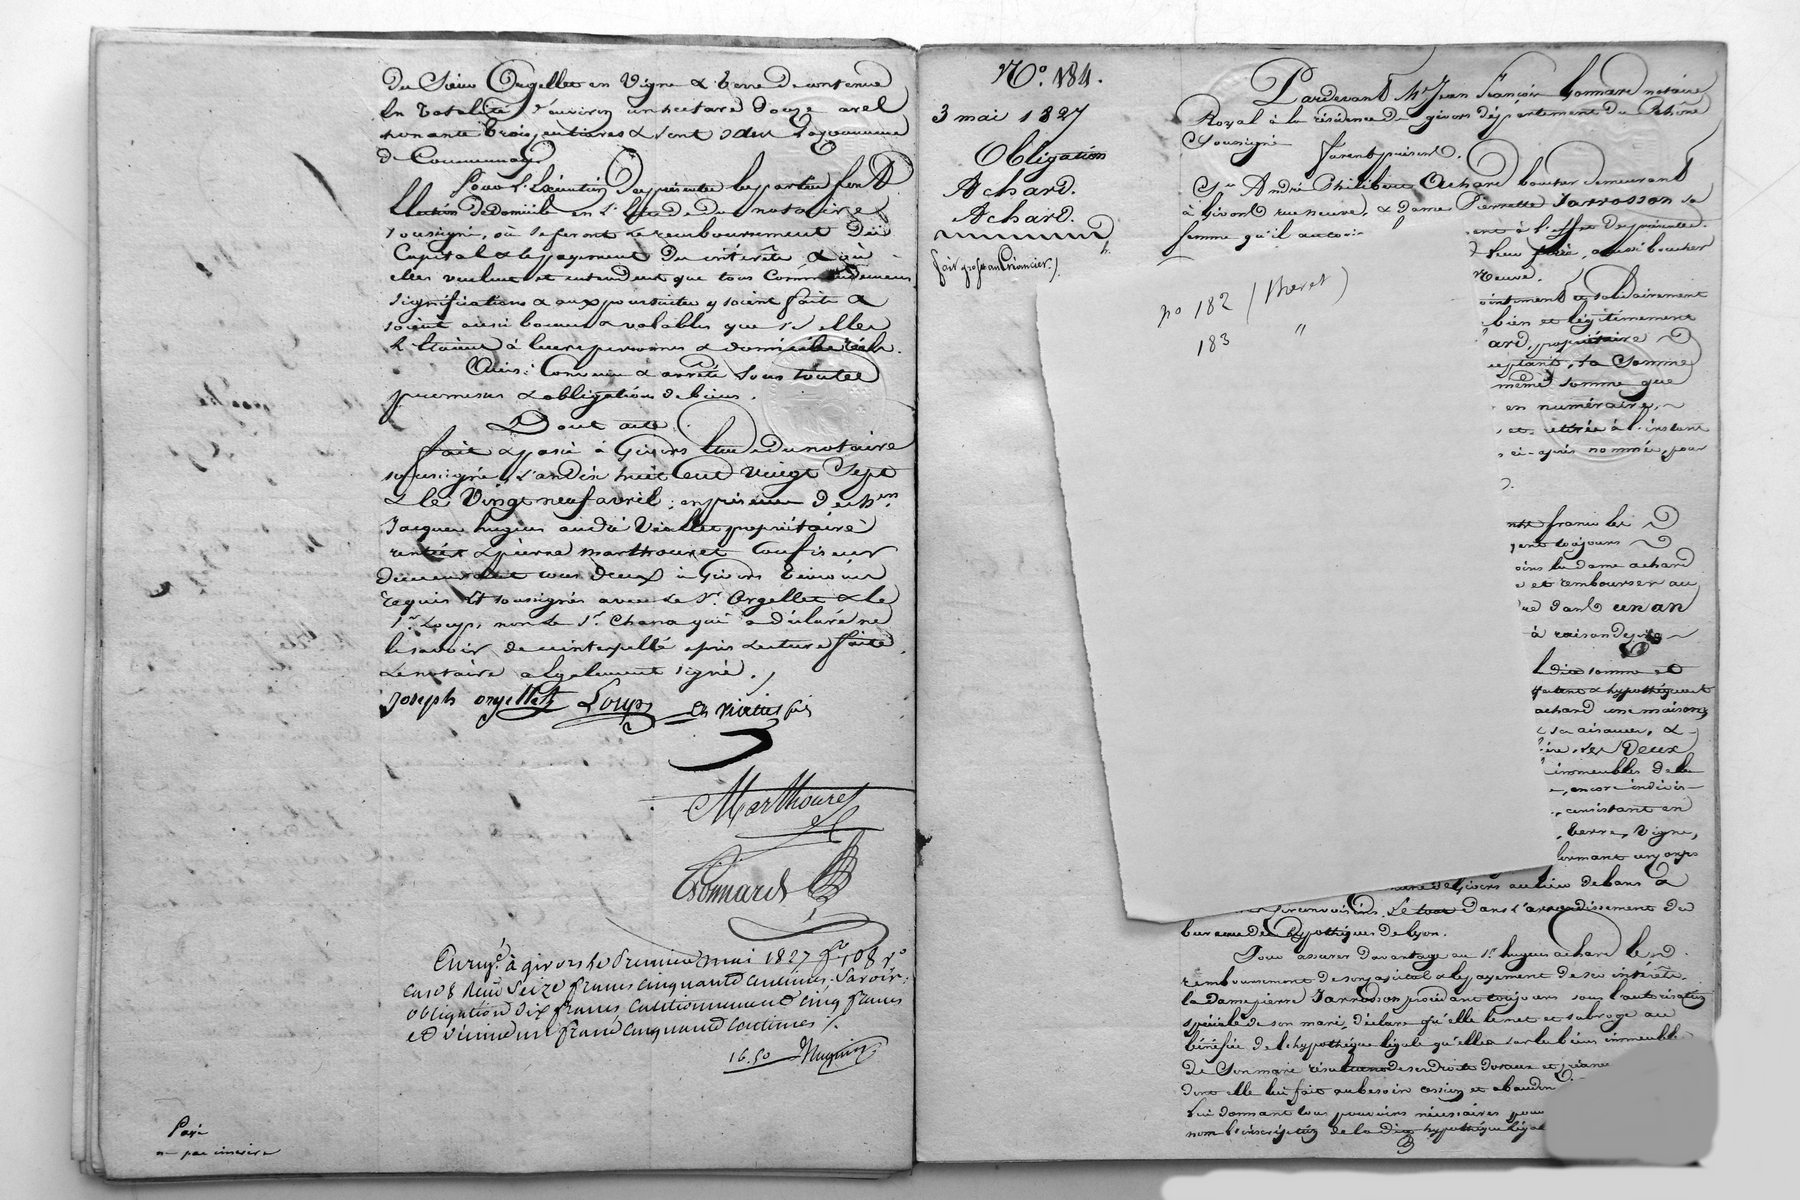 du Sieur Orgellet en vigne & terre de contenue
en totalité d'environ un hectare douze ares
nonante trois centiares & sont situés
de Communay
Pour l'Exécution des présentes les parties font
Election de domicile en l'étude du notaire
soussigné, où se feront le remboursement du
Capital & le payement des intérêts & où
elles veulent et entendent que tous Commandemens
significations & aux poursuites y soient faits &
soient aussi bonnes & valables que si elles
l'étaient à leurs personnes & domicile réels.
Ainsi Convenu & arrêté sous toutes
promesses & obligations de biens.
Dont acte
fait & passé à Givors Etude du notaire
soussigné, L'an Dix huit Cent vingt Sept
& le Vingt neuf avril, en présence de
Jacques hugues andré Viallet propriétaire
rentier & pierre Marthouret Confiseur
demeurant tous deux à Givors témoins
requis et soussignés avec le Sr. Orgellet & le
Sr. Loup, non le Sr. Chana qui a déclaré ne
le savoir de ce interpellé après lecture faite,
Le notaire a également signé.
Joseph orgellet Loup
Marthouret
Bonnard
Enregt. à givors le premier mai 1827 fo. 108 ro
case 8 Reçu Seize francs cinquante centimes, Savoir:
obligation dix francs Cautionnement cinq francs
et décime un franc cinquante centimes
16.50
Payé
No. 184.
3 mai 1827
Obligation
Achard.
Achard.
fait grosse au Créancier
no 182 (Meret)
183 "
Pardevant Me. Jean François Bonnard notaire
Royal à la résidence de givors département du Rhône
Soussigné
furent présens.
Sr. André Philibert Achard boucher demeurant
à Givors rue neuve, & dame Pierrette Jarrosson sa
femme qu'il autori
ent à l'effet des présentes.
feu, aussi boucher
neuve.
ointement & solidairement
bien et légitimement
ard, propriétaire
ceptant, la Somme
même somme que
en numéraire,
et retirée à l'instant
ci-après nommé, pour
francs les
gent toujours
oins la dame achard
e et rembourser au
dans un an
à raison de
dite somme et
ffectent & hypothèquent
achard une maison
sa aisances, &
Deux
immeubles de la
, encore indivis
consistant en
terre, vigne,
formant un corps
de Givors au lieu de bans &
circonvoisins. Le tout dans l'arrondissement du
bureau des hypothèques de lyon.
Pour assurer davantage au Sr. hugues achard le
remboursement de son capital & le payement de ses intérêts
la dame pierrette Jarrosson procédant toujours sous l'autorisation
spéciale de son mari, déclare qu'elle le met et subroge au
bénéfice de l'hypothèque légale qu'elle a sur les biens immeubles
De Son mari résultant de ses droits dotaux et
dont elle lui fait au besoin cession et abandon
Lui donnant tous pouvoirs nécessaires pour
nom l'inscription de la dite hypothèque légal